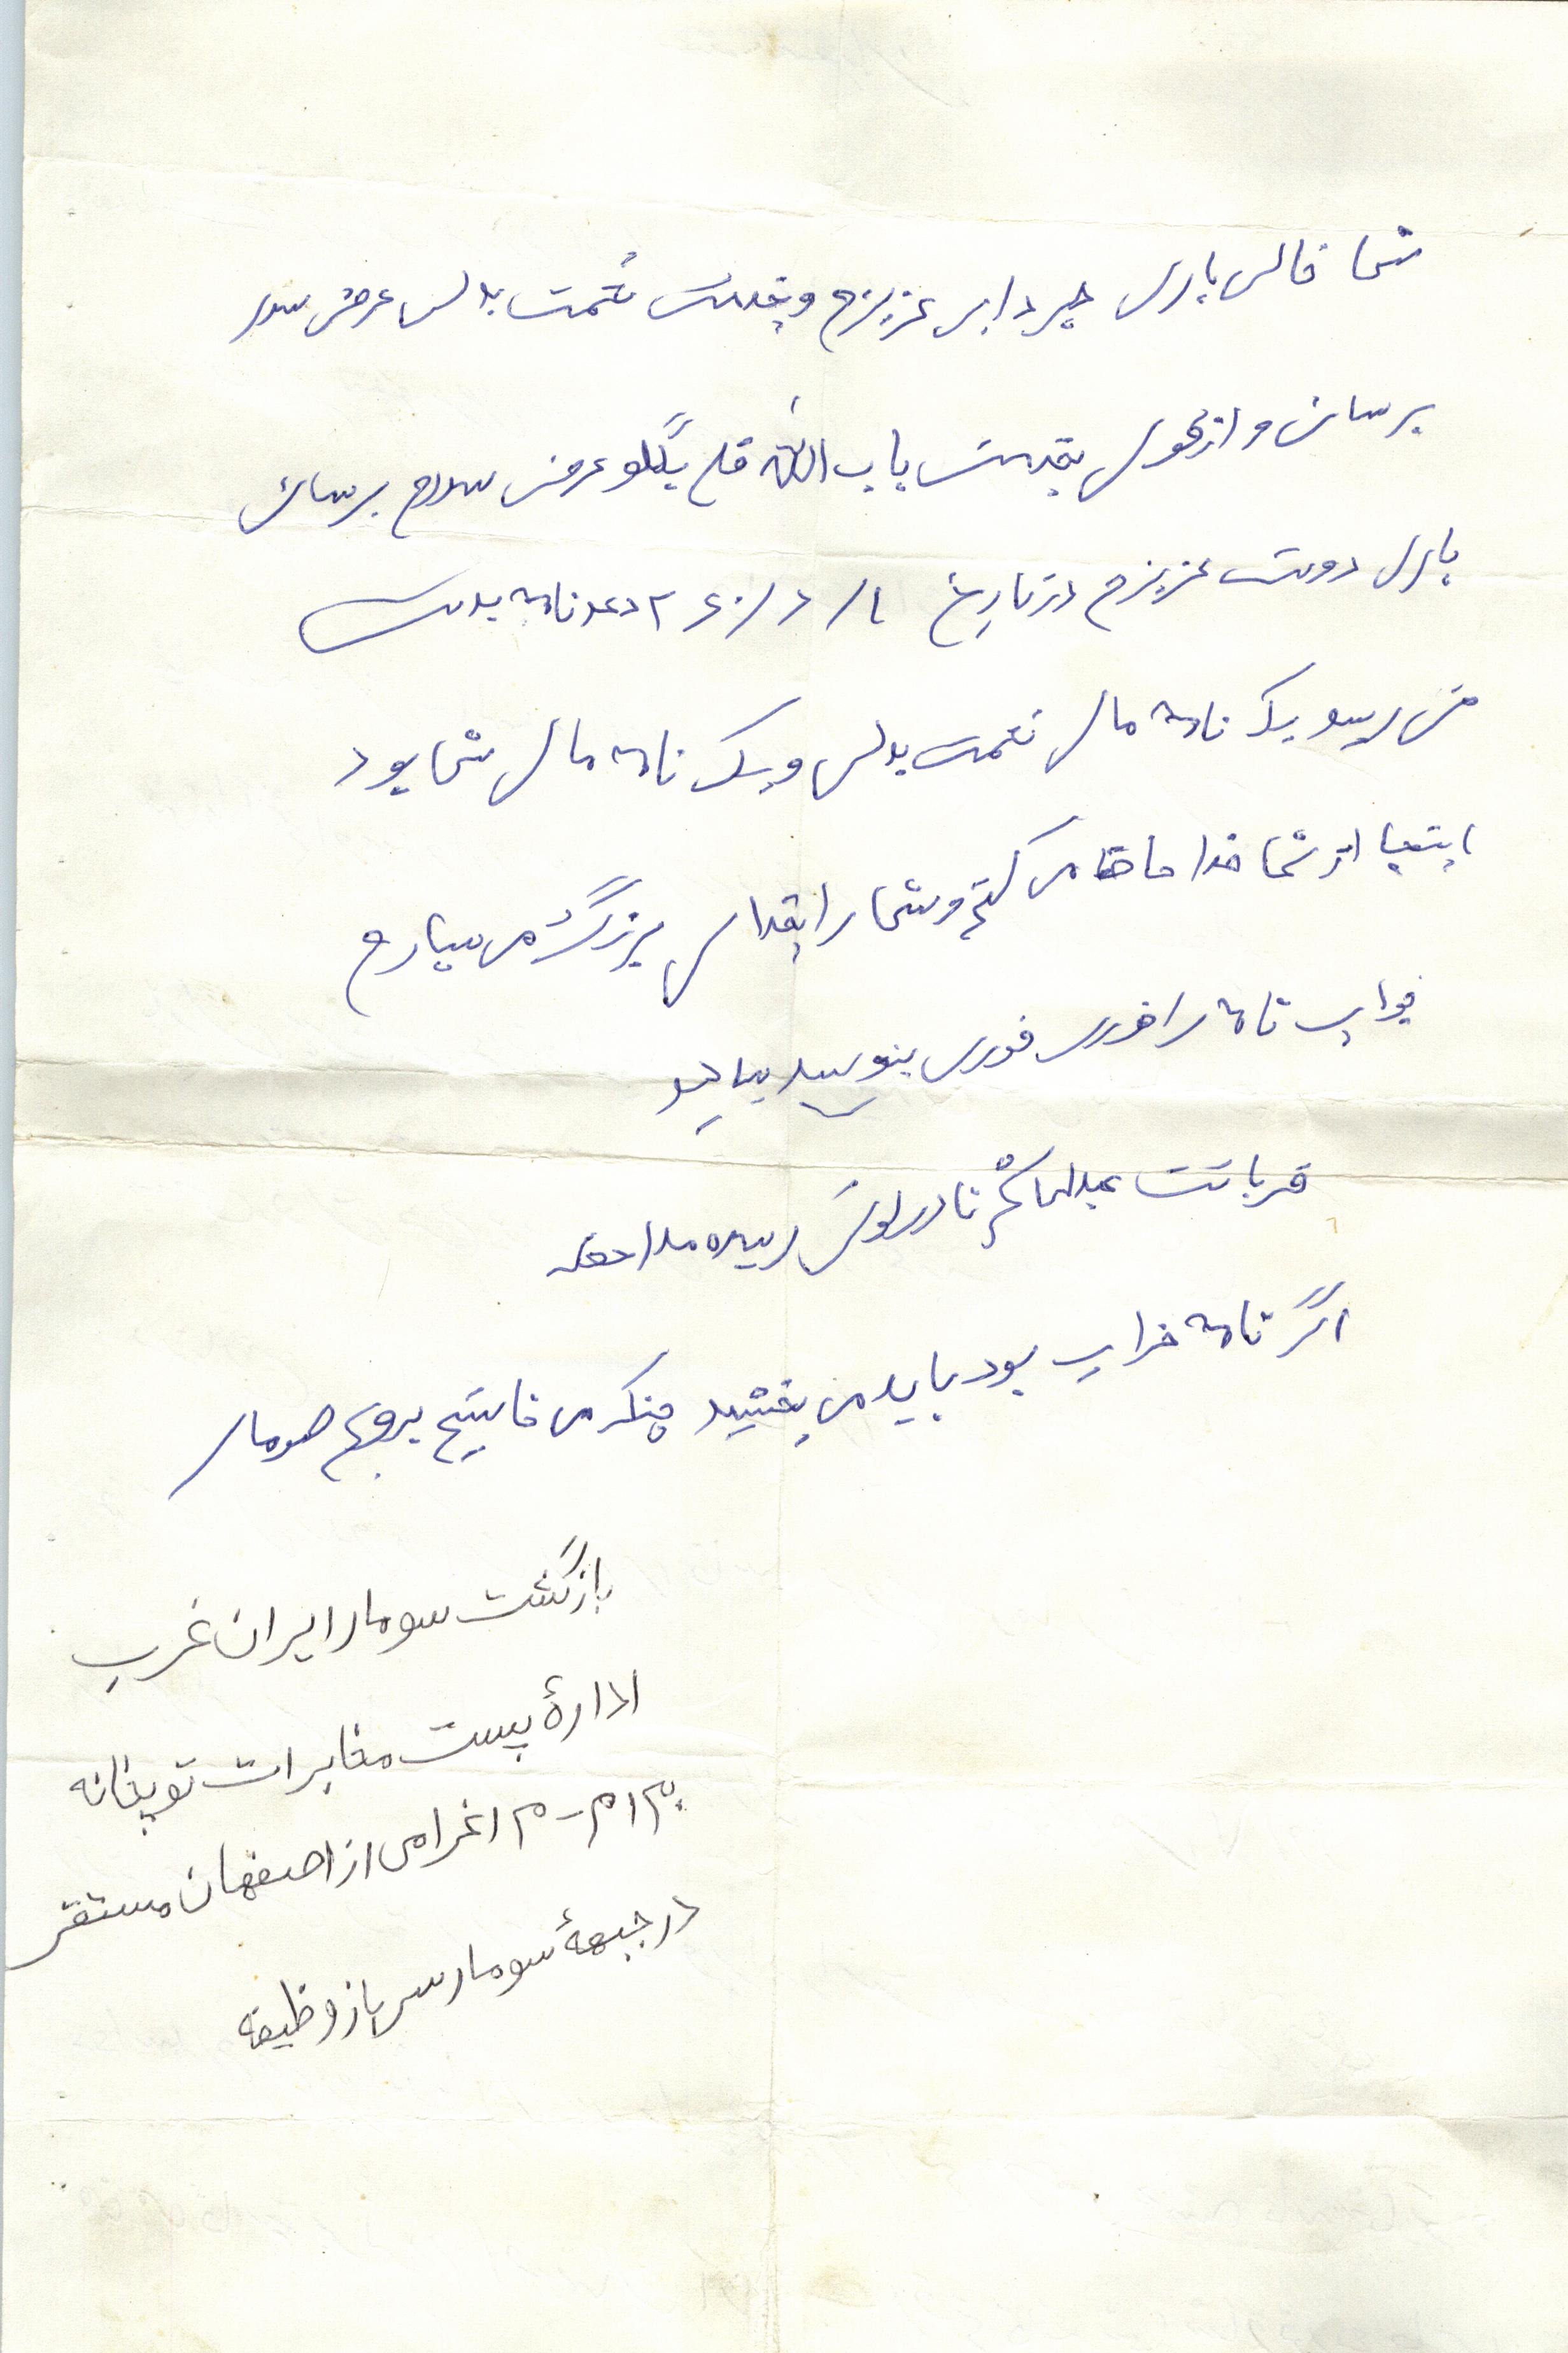 شما خالی باری خیر دابی عزیزم و بخدمت نعمت بدلی عرض سلام
برسان و از قول بخدمت باب الله قلی بگلو عرض سلام برسان
باری دوست عزیزم در تاریخ ۶۰/۶/۱ ۲ عدد نامه بدست
من رسید یک نامه مال نعمت بدلی و یک نامه مال شما بود
اینجا از شما خدا حافظ می کنم و شما را بخدای بزرگ می سپارم
جواب نامه را فوری فوری بنویسید
قربانت عبدالحاکم نادرلوئی رسیده ملاحظه
اگر نامه خراب بود باید می بخشید چنکه من
بازگشت سومار ایران غرب
ادارهٔ پست مخابرات توپخانه
م م اغرامی از اصفهان مستقر
در جبههٔ سومار سرباز وظیفه